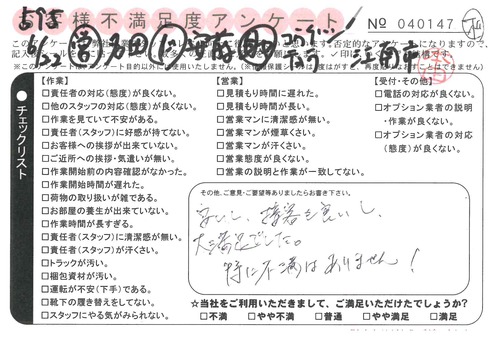 お客様不満足度アンケート
No 040147
6/23
【作業】
□責任者の対応(態度)が良くない。
□他のスタッフの対応(態度)が良くない。
□作業を見ていて不安がある。
□責任者(スタッフ)に好感が持てない。
□お客様への挨拶が出来ていない。
□ご近所への挨拶・気遣いが無い。
□作業開始前の内容確認がなかった。
□作業開始時間が遅れた。
□荷物の取り扱いが雑である。
□お部屋の養生が出来ていない。
□作業時間が長すぎる。
□責任者(スタッフ)に清潔感が無い。
□責任者(スタッフ)が汗くさい。
□トラックが汚い。
□梱包資材が汚い。
□運転が不安(下手)である。
□靴下の履き替えをしてない。
□スタッフにやる気がみられない。
【営業】
□見積もり時間に遅れた。
□見積もり時間が長い。
□営業マンに清潔感が無い。
□営業マンが煙草くさい。
□営業マンが汗くさい。
□営業態度が良くない。
□営業の説明と作業が一致してない。
【受付・その他】
□電話の対応が良くない。
□オプション業者の説明
・作業が良くない。
□オプション業者の対応
(態度)が良くない。
●チェックリスト
その他、ご意見・ご要望等ありましたらお書き下さい。
安いし、接客も良いし、
大満足でした。
特に不満はありません!
☆当社をご利用いただきまして、ご満足いただけたでしょうか?
□不満 □やや不満 □普通 □やや満足 □満足